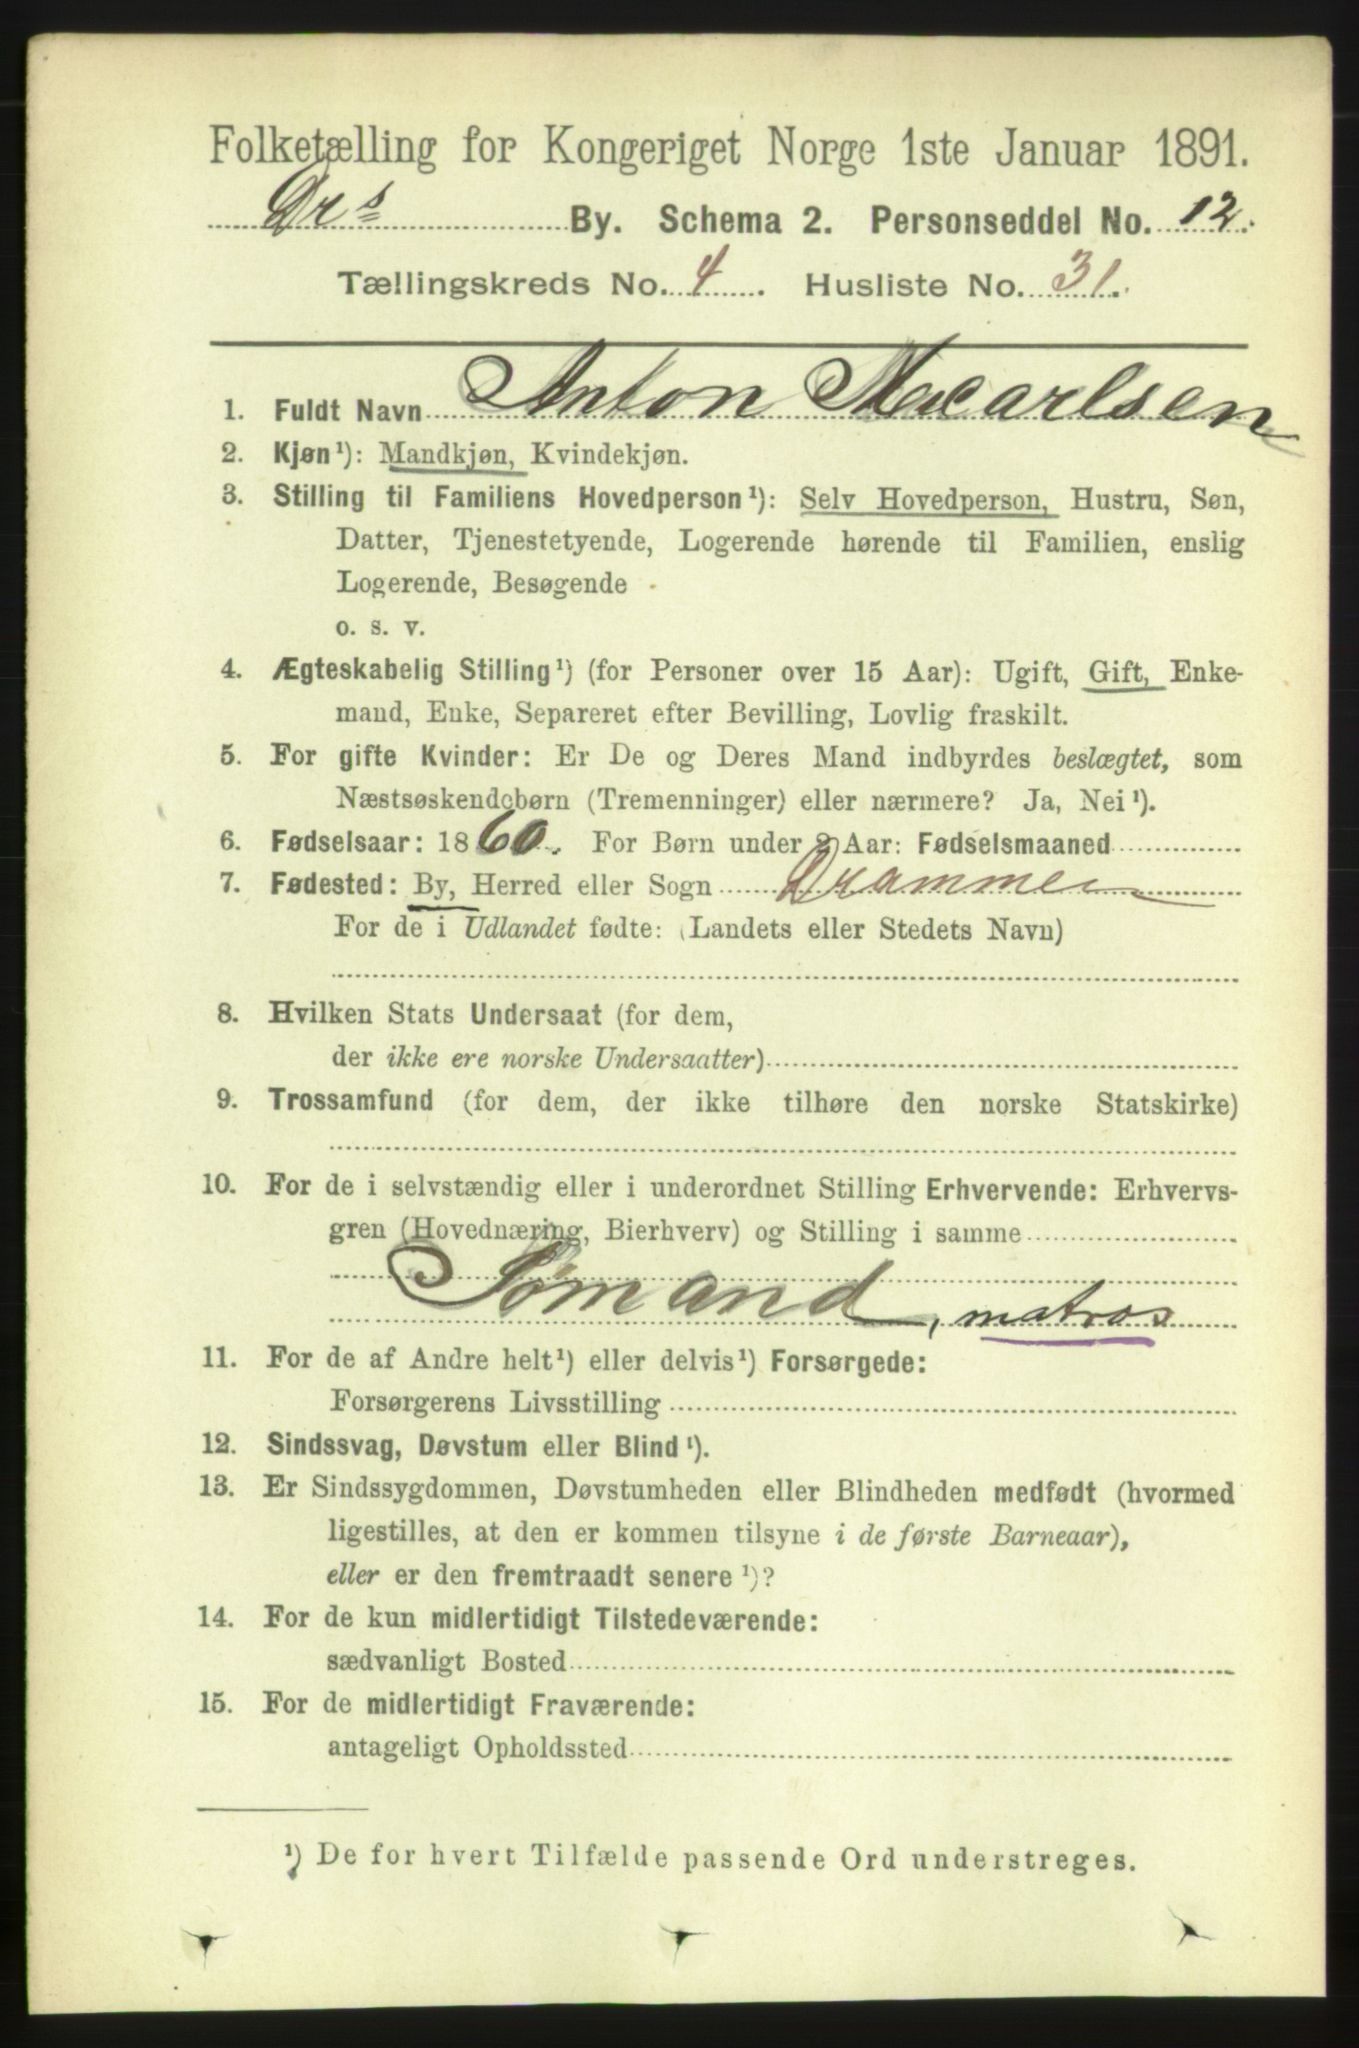 Folketælling for Kongeriget Norge 1ste Januar 1891.
Drs By. Schema 2. Personseddel No. 12.
Tællingskreds No. 4. Husliste No. 31.
1. Fuldt Navn Anton Carlsen
2. Kjøn¹): Mandkjøn, Kvindekjøn.
3. Stilling til Familiens Hovedperson¹): Selv Hovedperson, Hustru, Søn,
Datter, Tjenestetyende, Logerende hørende til Familien, enslig
Logerende, Besøgende
o. s. v.
4. Ægteskabelig Stilling¹) (for Personer over 15 Aar): Ugift, Gift, Enke-
mand, Enke, Separeret efter Bevilling, Lovlig fraskilt.
5. For gifte Kvinder: Er De og Deres Mand indbyrdes beslægtet, som
Næstsøskendebørn (Tremenninger) eller nærmere? Ja, Nei¹).
6. Fødselsaar: 1860. For Børn under 2 Aar: Fødselsmaaned
7. Fødested: By, Herred eller Sogn Drammen
For de i Udlandet fødte: (Landets eller Stedets Navn)
8. Hvilken Stats Undersaat (for dem,
der ikke ere norske Undersaatter)
9. Trossamfund (for dem, der ikke tilhøre den norske Statskirke)
10. For de i selvstændig eller i underordnet Stilling Erhvervende: Erhvervs-
gren (Hovednæring, Bierhverv) og Stilling i samme
Sømand, matros
11. For de af Andre helt¹) eller delvis¹) Forsørgede:
Forsørgerens Livsstilling
12. Sindssvag, Døvstum eller Blind¹).
13. Er Sindssygdommen, Døvstumheden eller Blindheden medfødt (hvormed
ligestilles, at den er kommen tilsyne i de første Barneaar),
eller er den fremtraadt senere¹)?
14. For de kun midlertidigt Tilstedeværende:
sædvanligt Bosted
15. For de midlertidigt Fraværende:
antageligt Opholdssted
¹) De for hvert Tilfælde passende Ord understreges.